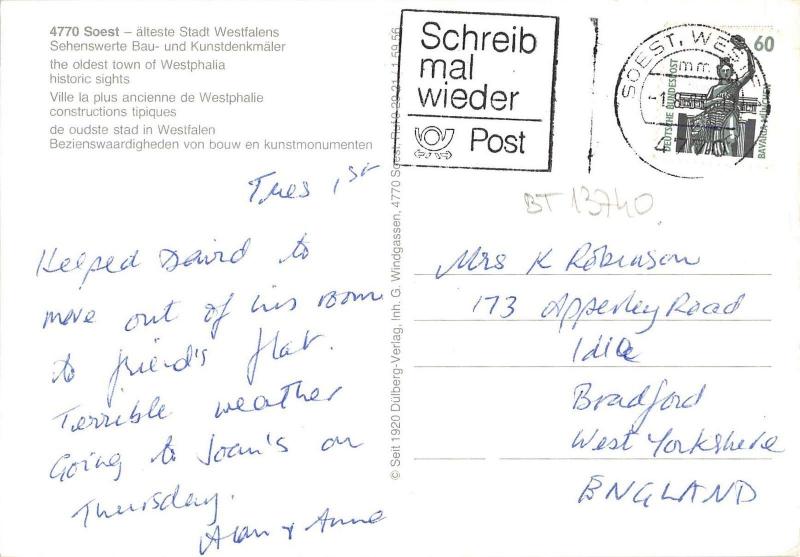 4770 Soest – älteste Stadt Westfalens
Sehenswerte Bau- und Kunstdenkmäler
the oldest town of Westphalia
historic sights
Ville la plus ancienne de Westphalie
constructions tipiques
de oudste stad in Westfalen
Bezienswaardigheden van bouw en kunstmonumenten
Schreib
mal
wieder
Post
SOEST, WESTF
mm
-1.
60
DEUTSCHE BUNDESPOST
BAVARIA MÜNCHEN
BT 13740
Tues 1st
Helped David to
move out of his room
to friend's flat.
Terrible weather
Going to Joan's on
Thursday.
Alan & Anne
© Seit 1920 Dülberg-Verlag, Inh. G. Windgassen, 4770 Soest,
Mrs K Robinson
173 Apperley Road
Idle
Bradford
West Yorkshire
ENGLAND